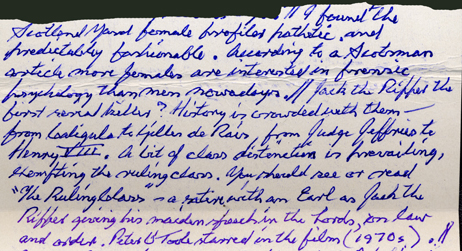 .// I found the
Scotland Yard female profiler pathetic and
predictably fashionable. According to a Scotsman
article more females are interested in forensic
psychology than men nowadays.// Jack the Ripper the
first serial killer? History is crowded with them —
from Caligula to Gilles de Rais, from Judge Jeffries to
Henry VIII. A bit of class distinction is prevailing,
exempting the ruling class. You should see or read
"The Ruling Class" - a satire with an Earl as Jack the
Ripper giving his maiden speech in the Lords, on law
and order. Peter O'Toole starred in the film (1970s).//